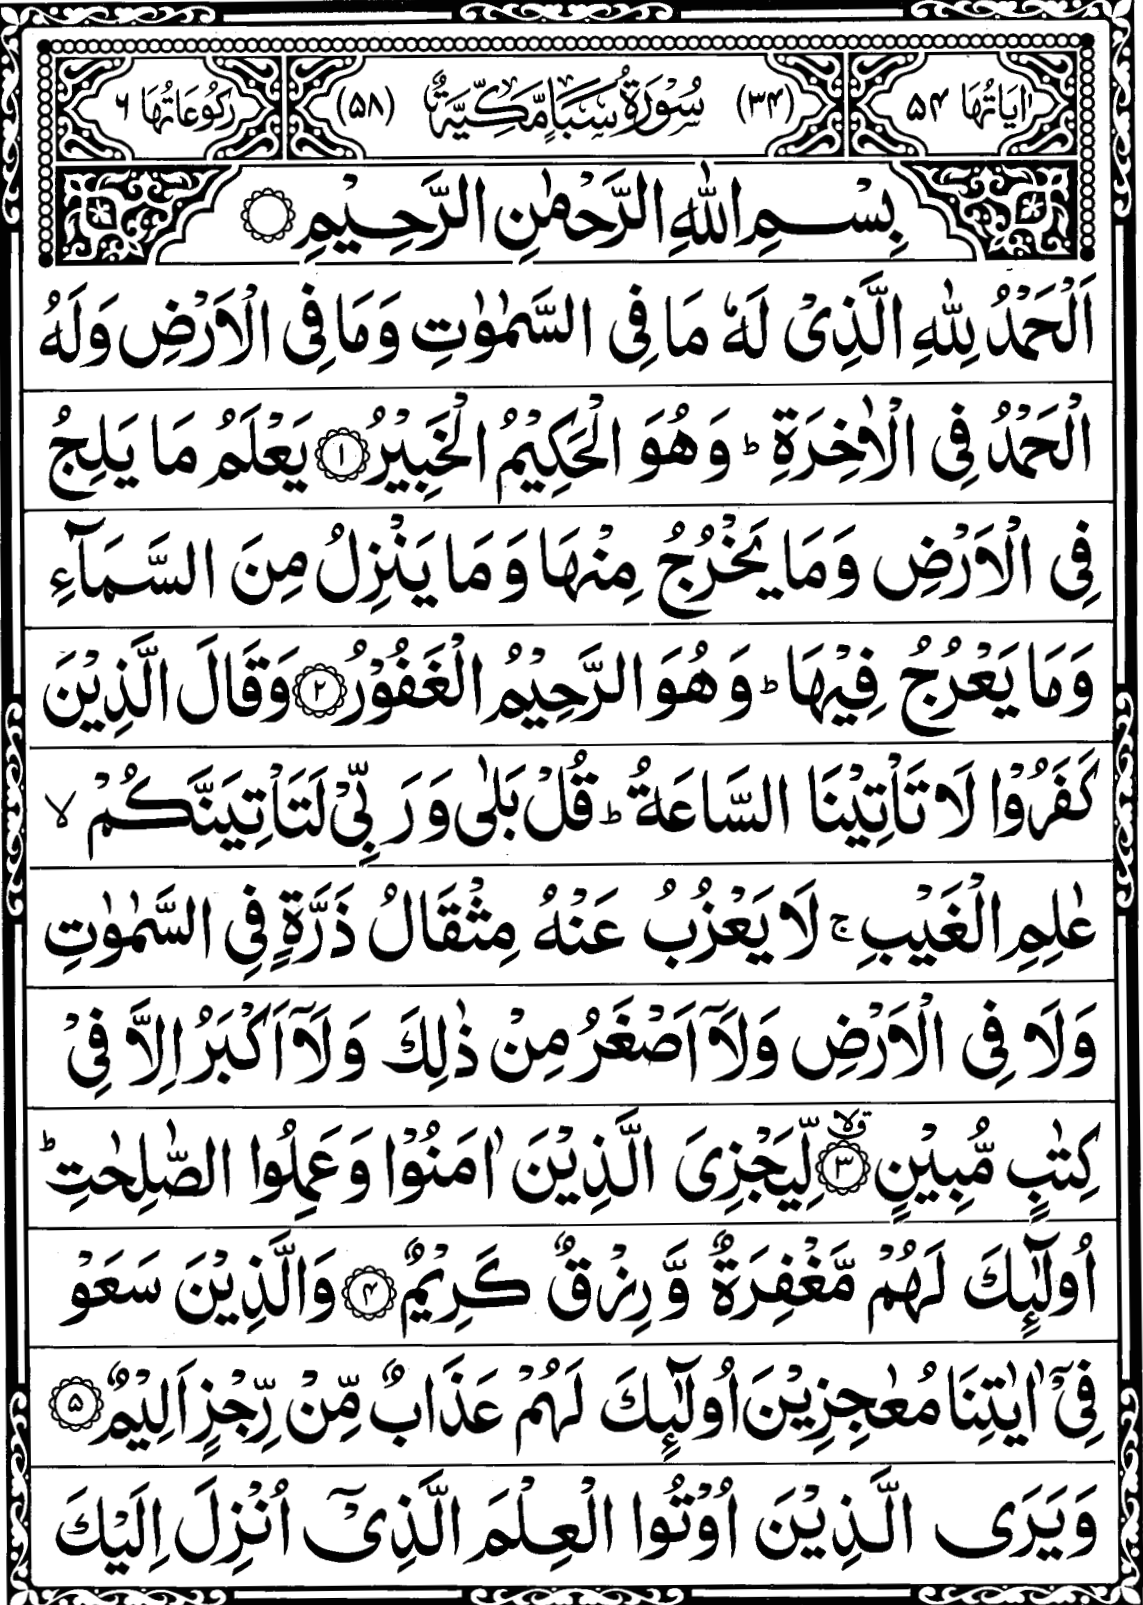 اٰیَاتُهَا ۵۴ (۳۴) سُوْرَةُ سَبَاٍ مَّکِّیَّةٌ (۵۸) رُکُوْعَاتُهَا ۶
بِسْمِ اللّٰهِ الرَّحْمٰنِ الرَّحِیْمِ ۝
اَلْحَمْدُ لِلّٰهِ الَّذِیْ لَهٗ مَا فِی السَّمٰوٰتِ وَمَا فِی الْاَرْضِ وَلَهُ
الْحَمْدُ فِی الْاٰخِرَةِ ؕ وَهُوَ الْحَکِیْمُ الْخَبِیْرُ ۝۱ یَعْلَمُ مَا یَلِجُ
فِی الْاَرْضِ وَمَا یَخْرُجُ مِنْهَا وَمَا یَنْزِلُ مِنَ السَّمَآءِ
وَمَا یَعْرُجُ فِیْهَا ؕ وَهُوَ الرَّحِیْمُ الْغَفُوْرُ ۝۲ وَقَالَ الَّذِیْنَ
کَفَرُوْا لَا تَاْتِیْنَا السَّاعَةُ ؕ قُلْ بَلٰی وَرَبِّیْ لَتَاْتِیَنَّکُمْ ۙ
عٰلِمِ الْغَیْبِ ۚ لَا یَعْزُبُ عَنْهُ مِثْقَالُ ذَرَّةٍ فِی السَّمٰوٰتِ
وَلَا فِی الْاَرْضِ وَلَاۤ اَصْغَرُ مِنْ ذٰلِكَ وَلَاۤ اَکْبَرُ اِلَّا فِیْ
کِتٰبٍ مُّبِیْنٍ ۝۳ ۙق لِّیَجْزِیَ الَّذِیْنَ اٰمَنُوْا وَعَمِلُوا الصّٰلِحٰتِ ؕ
اُولٰٓئِكَ لَهُمْ مَّغْفِرَةٌ وَّرِزْقٌ کَرِیْمٌ ۝۴ وَالَّذِیْنَ سَعَوْ
فِیْۤ اٰیٰتِنَا مُعٰجِزِیْنَ اُولٰٓئِكَ لَهُمْ عَذَابٌ مِّنْ رِّجْزٍ اَلِیْمٌ ۝۵
وَیَرَی الَّذِیْنَ اُوْتُوا الْعِلْمَ الَّذِیْۤ اُنْزِلَ اِلَیْكَ